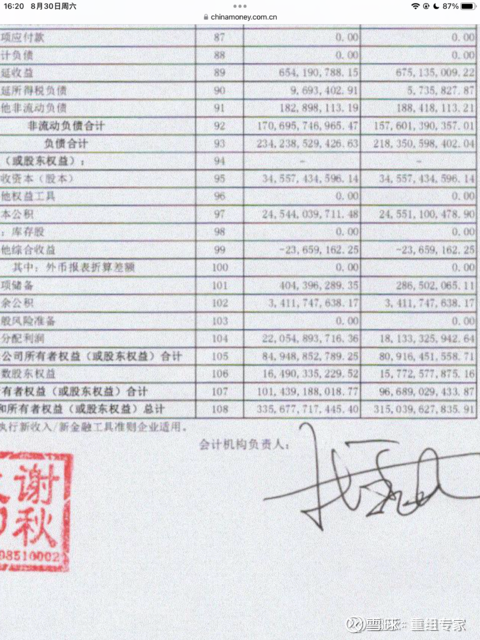 16:20 8月30日周六 87%
chinamoney.com.cn
项应付款 87 0.00 0.00
计负债 88 0.00 0.00
延收益 89 654,190,788.15 675,135,009.22
延所得税负债 90 9,693,402.91 5,735,827.87
他非流动负债 91 182,898,113.19 188,418,113.21
非流动负债合计 92 170,695,746,965.47 157,601,390,357.01
负债合计 93 234,238,529,426.63 218,350,598,402.04
(或股东权益): 94 - -
收资本(股本) 95 34,557,434,596.14 34,557,434,596.14
他权益工具 96 0.00 0.00
本公积 97 24,544,039,711.48 24,551,100,478.90
:库存股 98 0.00 0.00
他综合收益 99 -23,659,162.25 -23,659,162.25
其中:外币报表折算差额 100 0.00 0.00
项储备 101 404,396,289.35 286,502,065.11
余公积 102 3,411,747,638.17 3,411,747,638.17
股风险准备 103 0.00 0.00
分配利润 104 22,054,893,716.36 18,133,325,942.64
公司所有者权益(或股东权益)合计 105 84,948,852,789.25 80,916,451,558.71
数股东权益 106 16,490,335,229.52 15,772,577,875.16
有者权益(或股东权益)合计 107 101,439,188,018.77 96,689,029,433.87
和所有者权益(或股东权益)总计 108 335,677,717,445.40 315,039,627,835.91
执行新收入/新金融工具准则企业适用。
会计机构负责人:
谢
秋
08510002
雪球:重组专家